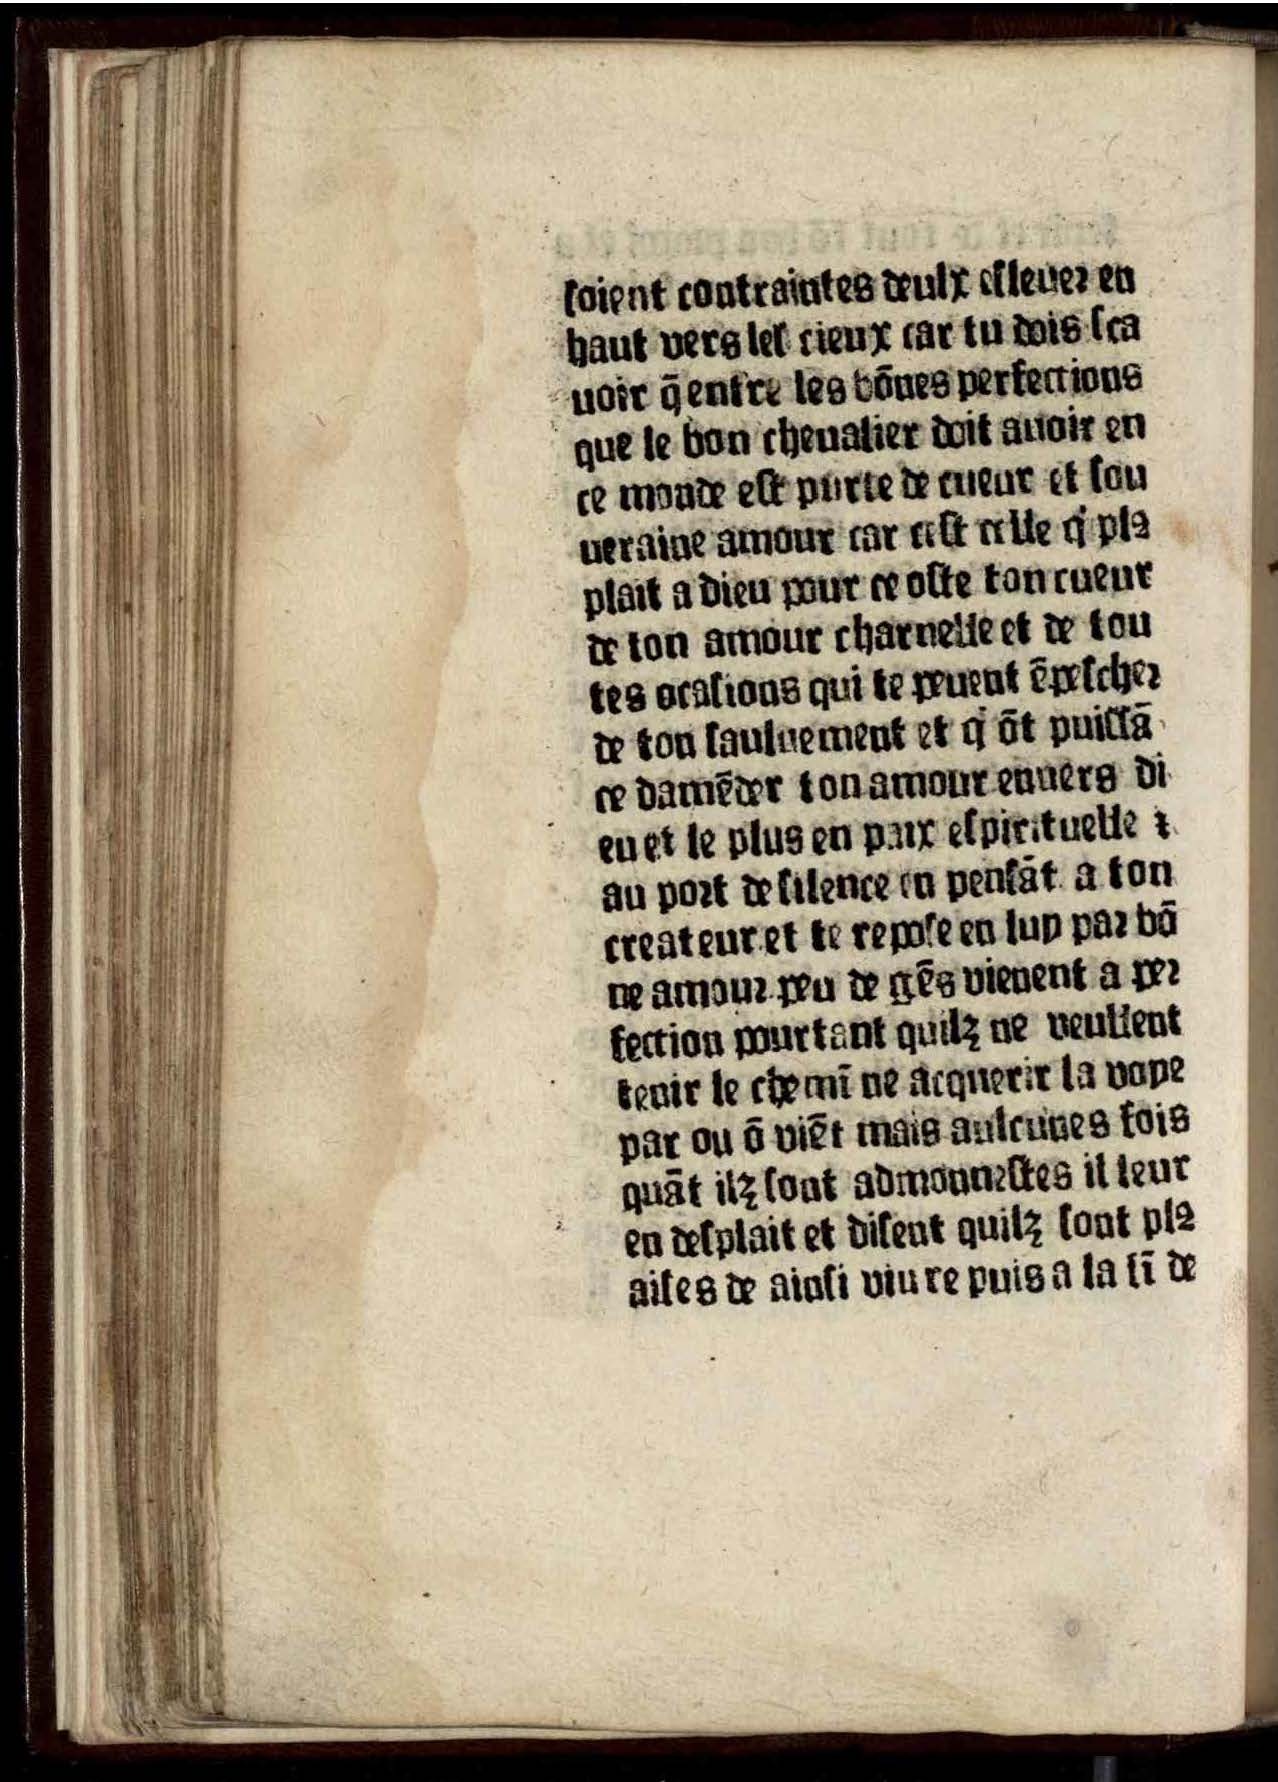 ſoient contraintes deulx eſleuer en
haut vers leſ cieux car tu dois ſca
uoir q̄ entre les bōnes perfections
que le bon cheualier doit auoir en
ce monde eſt purte de cueur et ſou
ueraine amour car ceſt celle q̇ pla
plait a dieu pour ce oſte ton cueur
de ton amour charnelle et de tou
tes ocaſions qui te peuent ēpeſcher
de ton ſauluement et q̇ ōt puiſſā
ce damēder ton amour enuers di
eu et le plus en paix eſpirituelle ⁊
au port de ſilence en penſāt a ton
createur et te repoſe en luy par bō
ne amour peu de gēs vienent a per
fection pourtant quilz ne veullent
tenir le chemī ne acquerir la voye
par ou ō viēt mais aulcunes fois
quāt ilz ſont admonneſtes il leur
en deſplait et diſent quilz ſont pla
aiſes de ainſi viure puis a la fī de